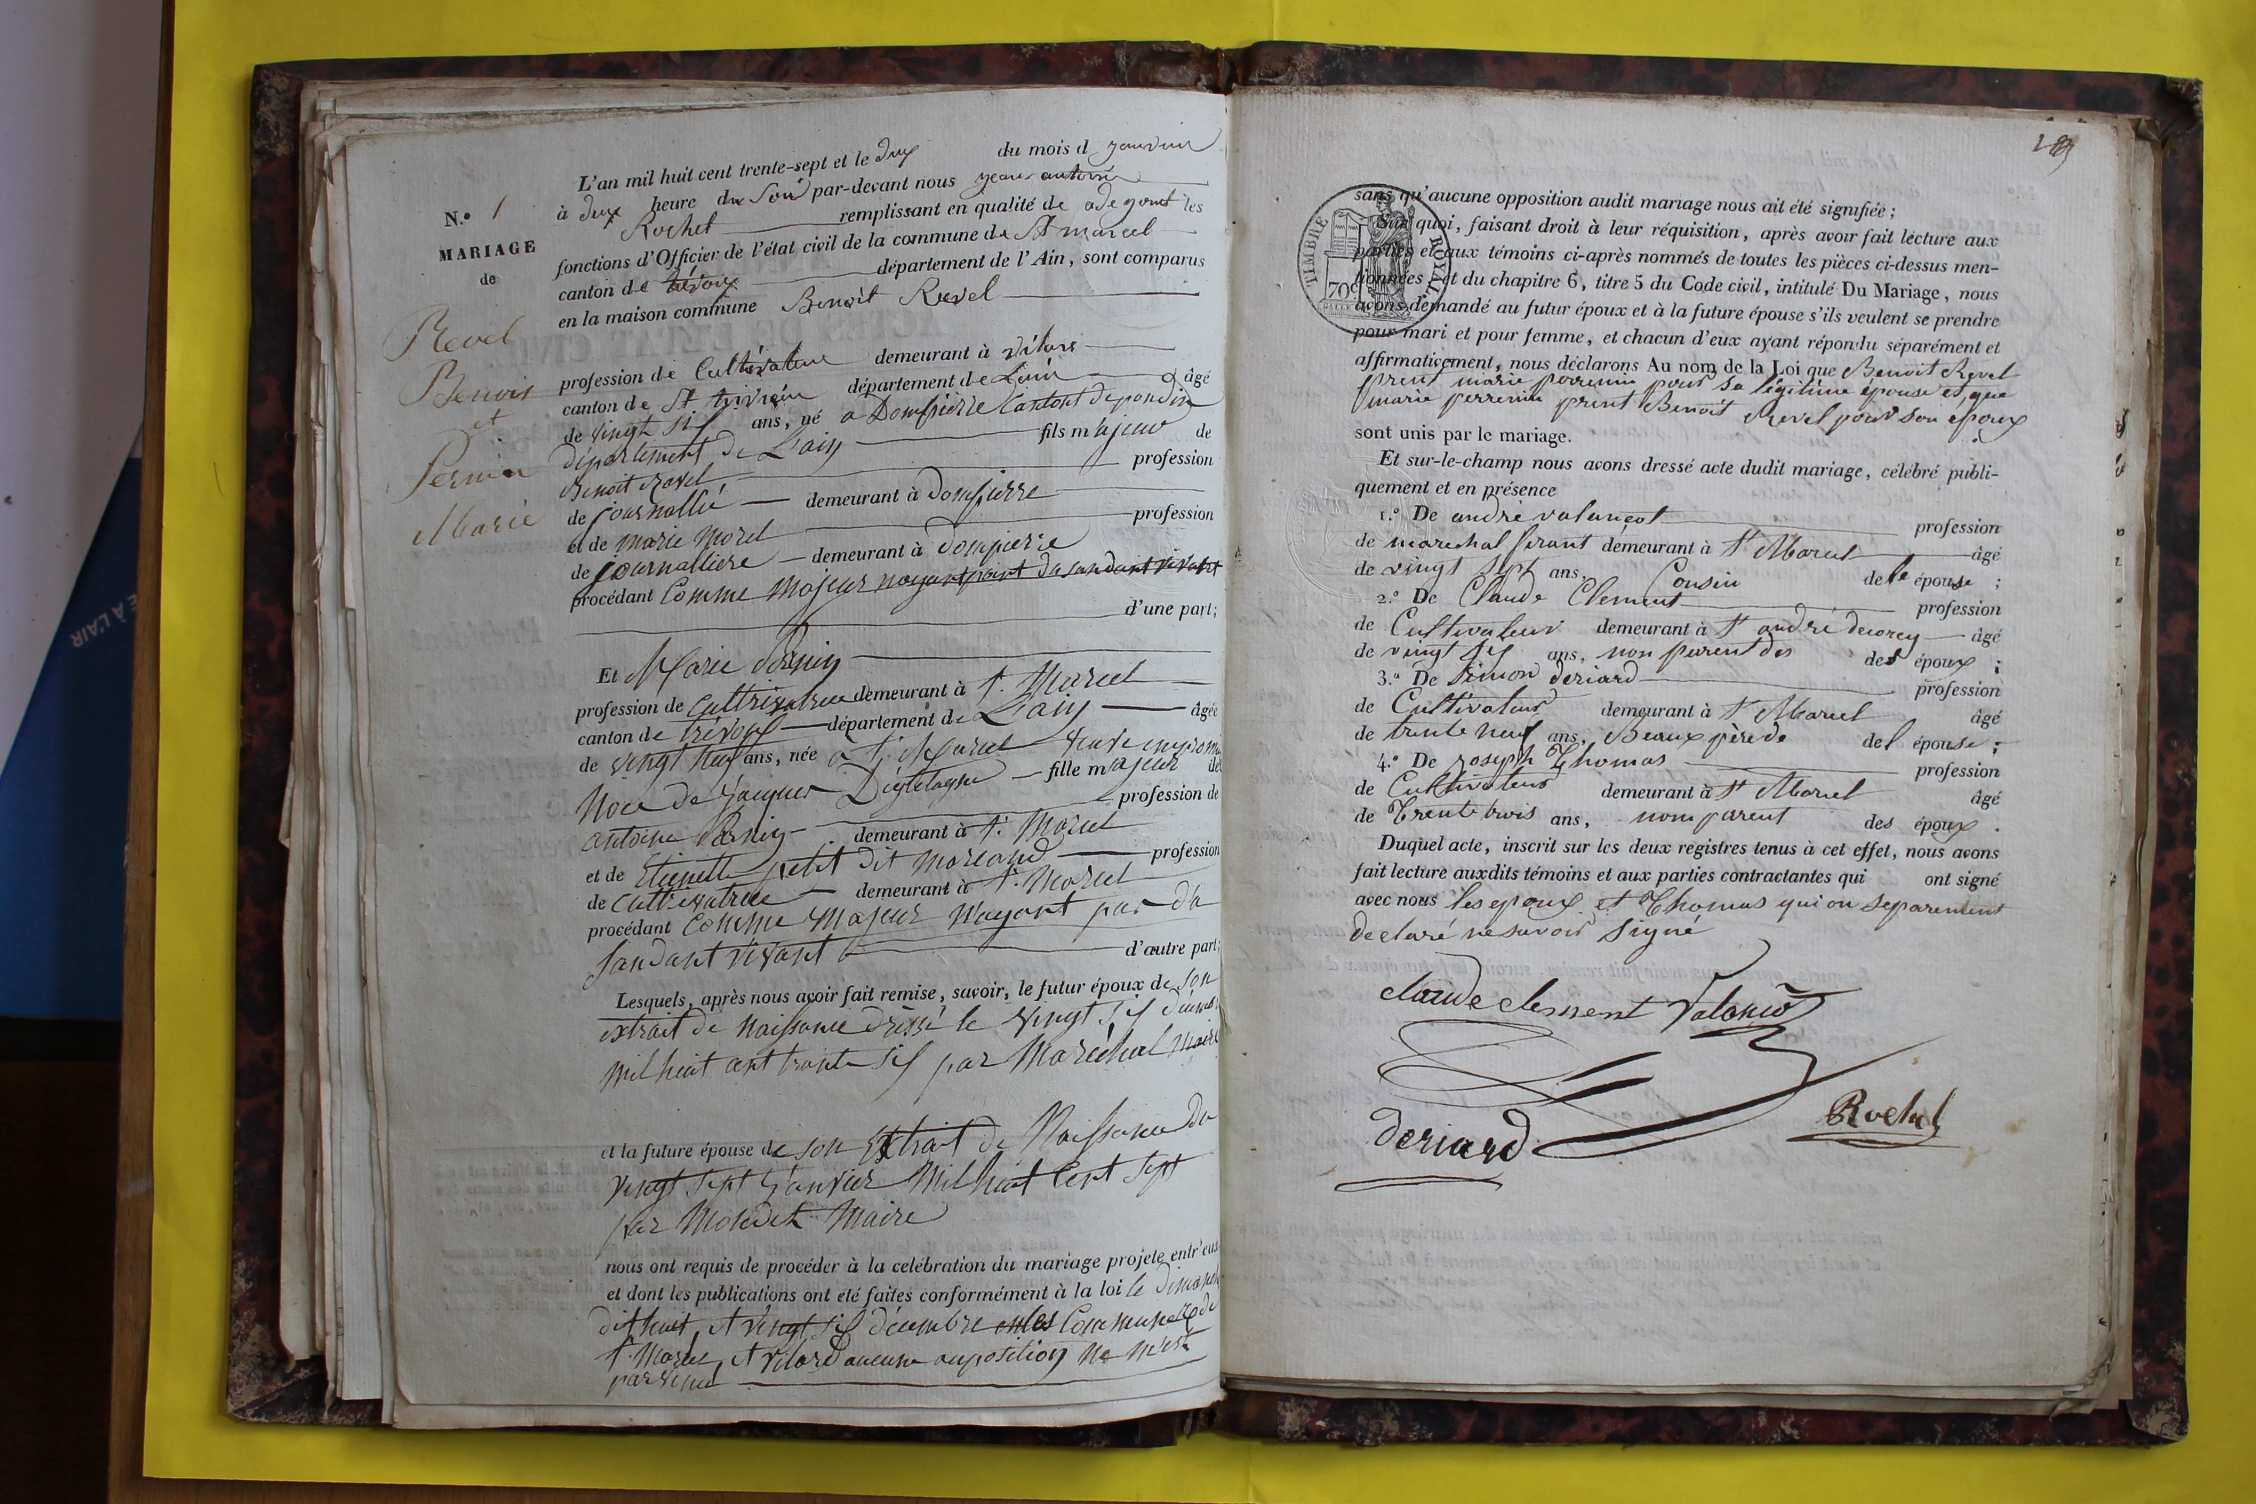 N.º 1
MARIAGE
de
Revel
Benoit
et
Pernin
Marie
L'an mil huit cent trente-sept et le dux du mois d janvier
à deux heure du Soir par-devant nous jean antoine
Rochet remplissant en qualité de les
fonctions d'Officier de l'état civil de la commune de St marcel
canton de trévoux département de l'Ain, sont comparus
en la maison commune Benoit Revel
profession de Cultivateur demeurant à
canton de St trivier département de Lain âgé
de vingt six ans, né a Dompierre Canton de pondin
département de Lain fils majeur de
Benoit Revel profession
de journallié demeurant à Dompierre
et de marie Morel profession
de journalliere demeurant à Dompierre
procédant Comme Majeur
d'une part;
Et Marie pernin
profession de Cultivatrice demeurant à St. Marcel
canton de trévoux département de Lain âgée
de vingt neuf ans, née a St. Marcel veuve
Noce de Jacques fille majeur de
antoine pernin profession de
demeurant à St. Marcel
et de Etienette petit dit Morland profession
de Cultivatrice demeurant à St. Marcel
procédant Comme Majeur Nayant pas da
sandant vivant d'autre part;
Lesquels, après nous avoir fait remise, savoir, le futur époux de son
extrait de Naissance dressé le vingt six
mil huit cent trante six par Maréchal Maire
et la future épouse de son Extrait de Naissance du
vingt sept Janvier Mil huit Cent sept
par Maire
nous ont requis de procéder à la celébration du mariage projeté entr'eux
et dont les publications ont été faites conformément à la loi le dimanche
dit huit, et vingt six décembre Commune de
St. Marcel, et vilard aucune auposition ne m'est
parvenu
sans qu'aucune opposition audit mariage nous ait été signifiée;
Sur quoi, faisant droit à leur réquisition, après avoir fait lecture aux
parties et aux témoins ci-après nommés de toutes les pièces ci-dessus men-
tionnées, et du chapitre 6, titre 5 du Code civil, intitulé Du Mariage, nous
avons demandé au futur époux et à la future épouse s'ils veulent se prendre
pour mari et pour femme, et chacun d'eux ayant répondu séparément et
affirmativement, nous déclarons Au nom de la Loi que Benoit Revel
prent marie perrenin pour sa légitime épouse et que
marie perrenin prent Benoit Revel pour son epoux
sont unis par le mariage.
Et sur-le-champ nous avons dressé acte dudit mariage, célébré publi-
quement et en présence
1.º De andré valançot profession
de marechal ferant demeurant à St Marcel âgé
de vingt sept ans, Cousin de le épouse;
2.º De Claude Clement profession
de Cultivateur demeurant à St andré decorcy âgé
de vingt six ans, non parent des des époux;
3.º De simon deriard profession
de Cultivateur demeurant à St Marcel âgé
de trente neuf ans, Beaux père de del épouse;
4.º De joseph Thomas profession
de Cultivateur demeurant à St Marcel âgé
de Trente trois ans, nom parent des époux.
Duquel acte, inscrit sur les deux registres tenus à cet effet, nous avons
fait lecture auxdits témoins et aux parties contractantes qui ont signé
avec nous les epoux et Thomas qui on separement
declaré ne savoir signé
claude clement
deriard
Rochet
TIMBRE ROYAL
70c
E À L'AIR